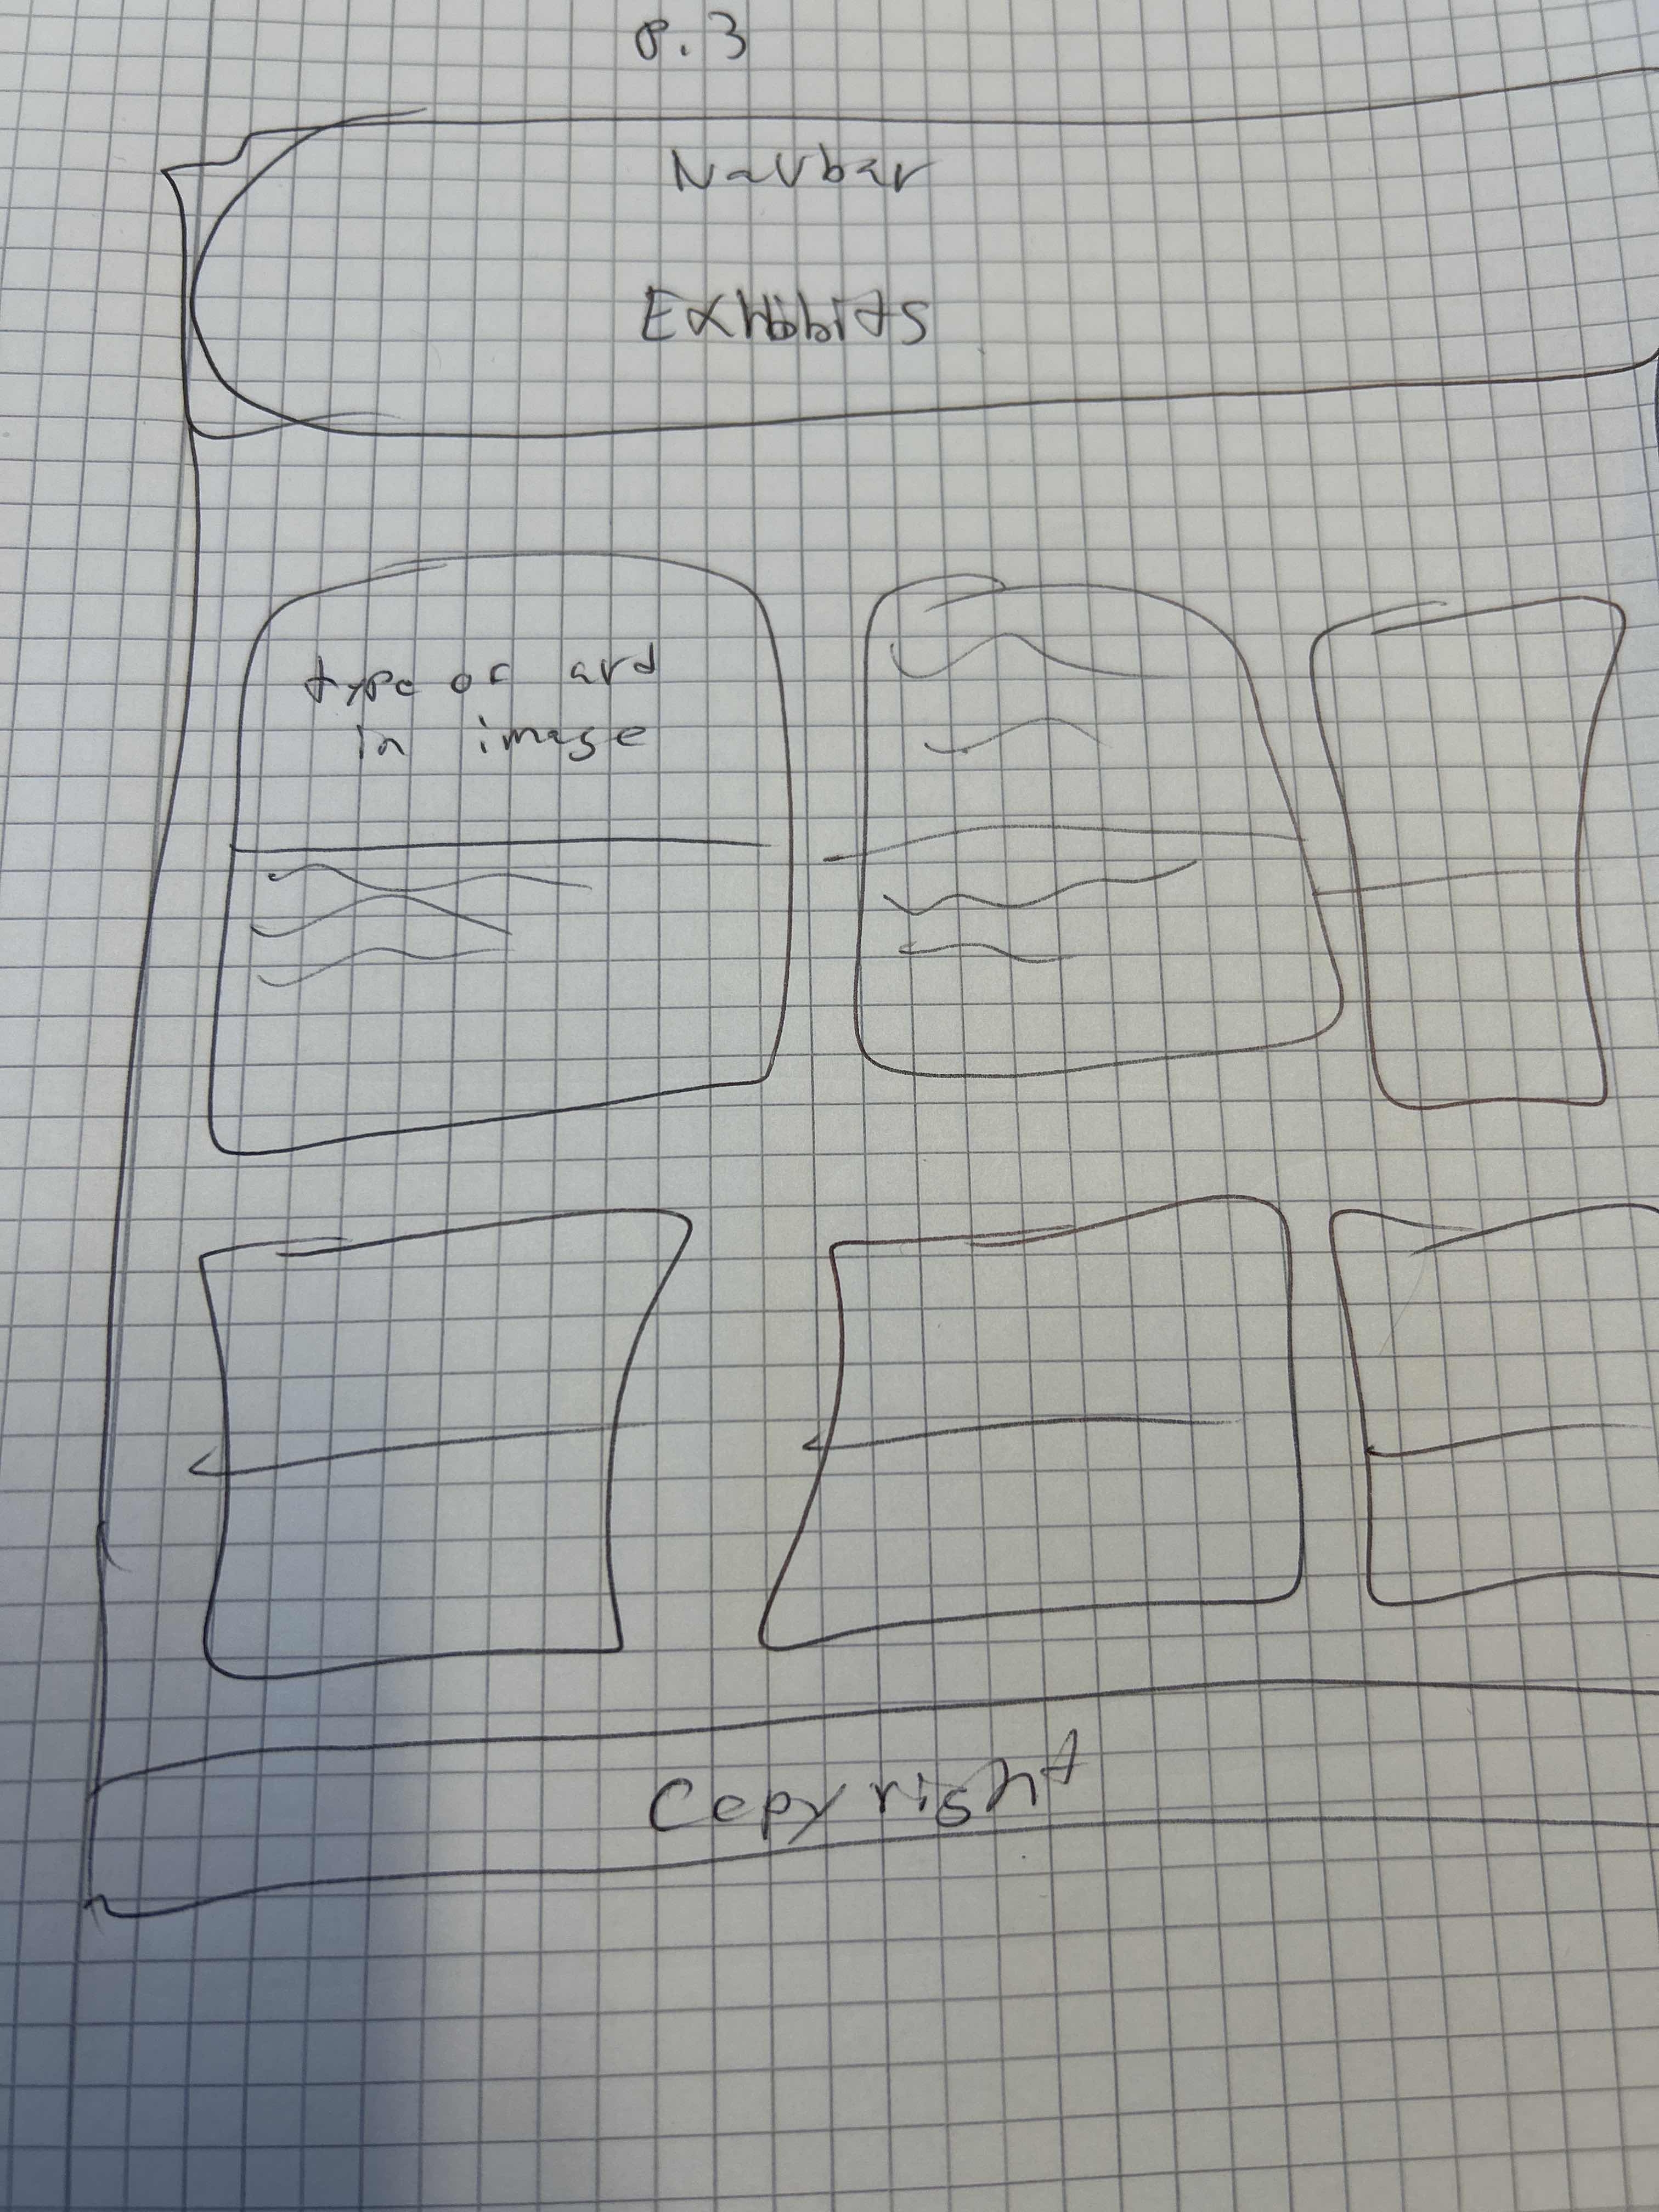 p. 3
Navbar
Exhibits
type of art
in image
Copyright